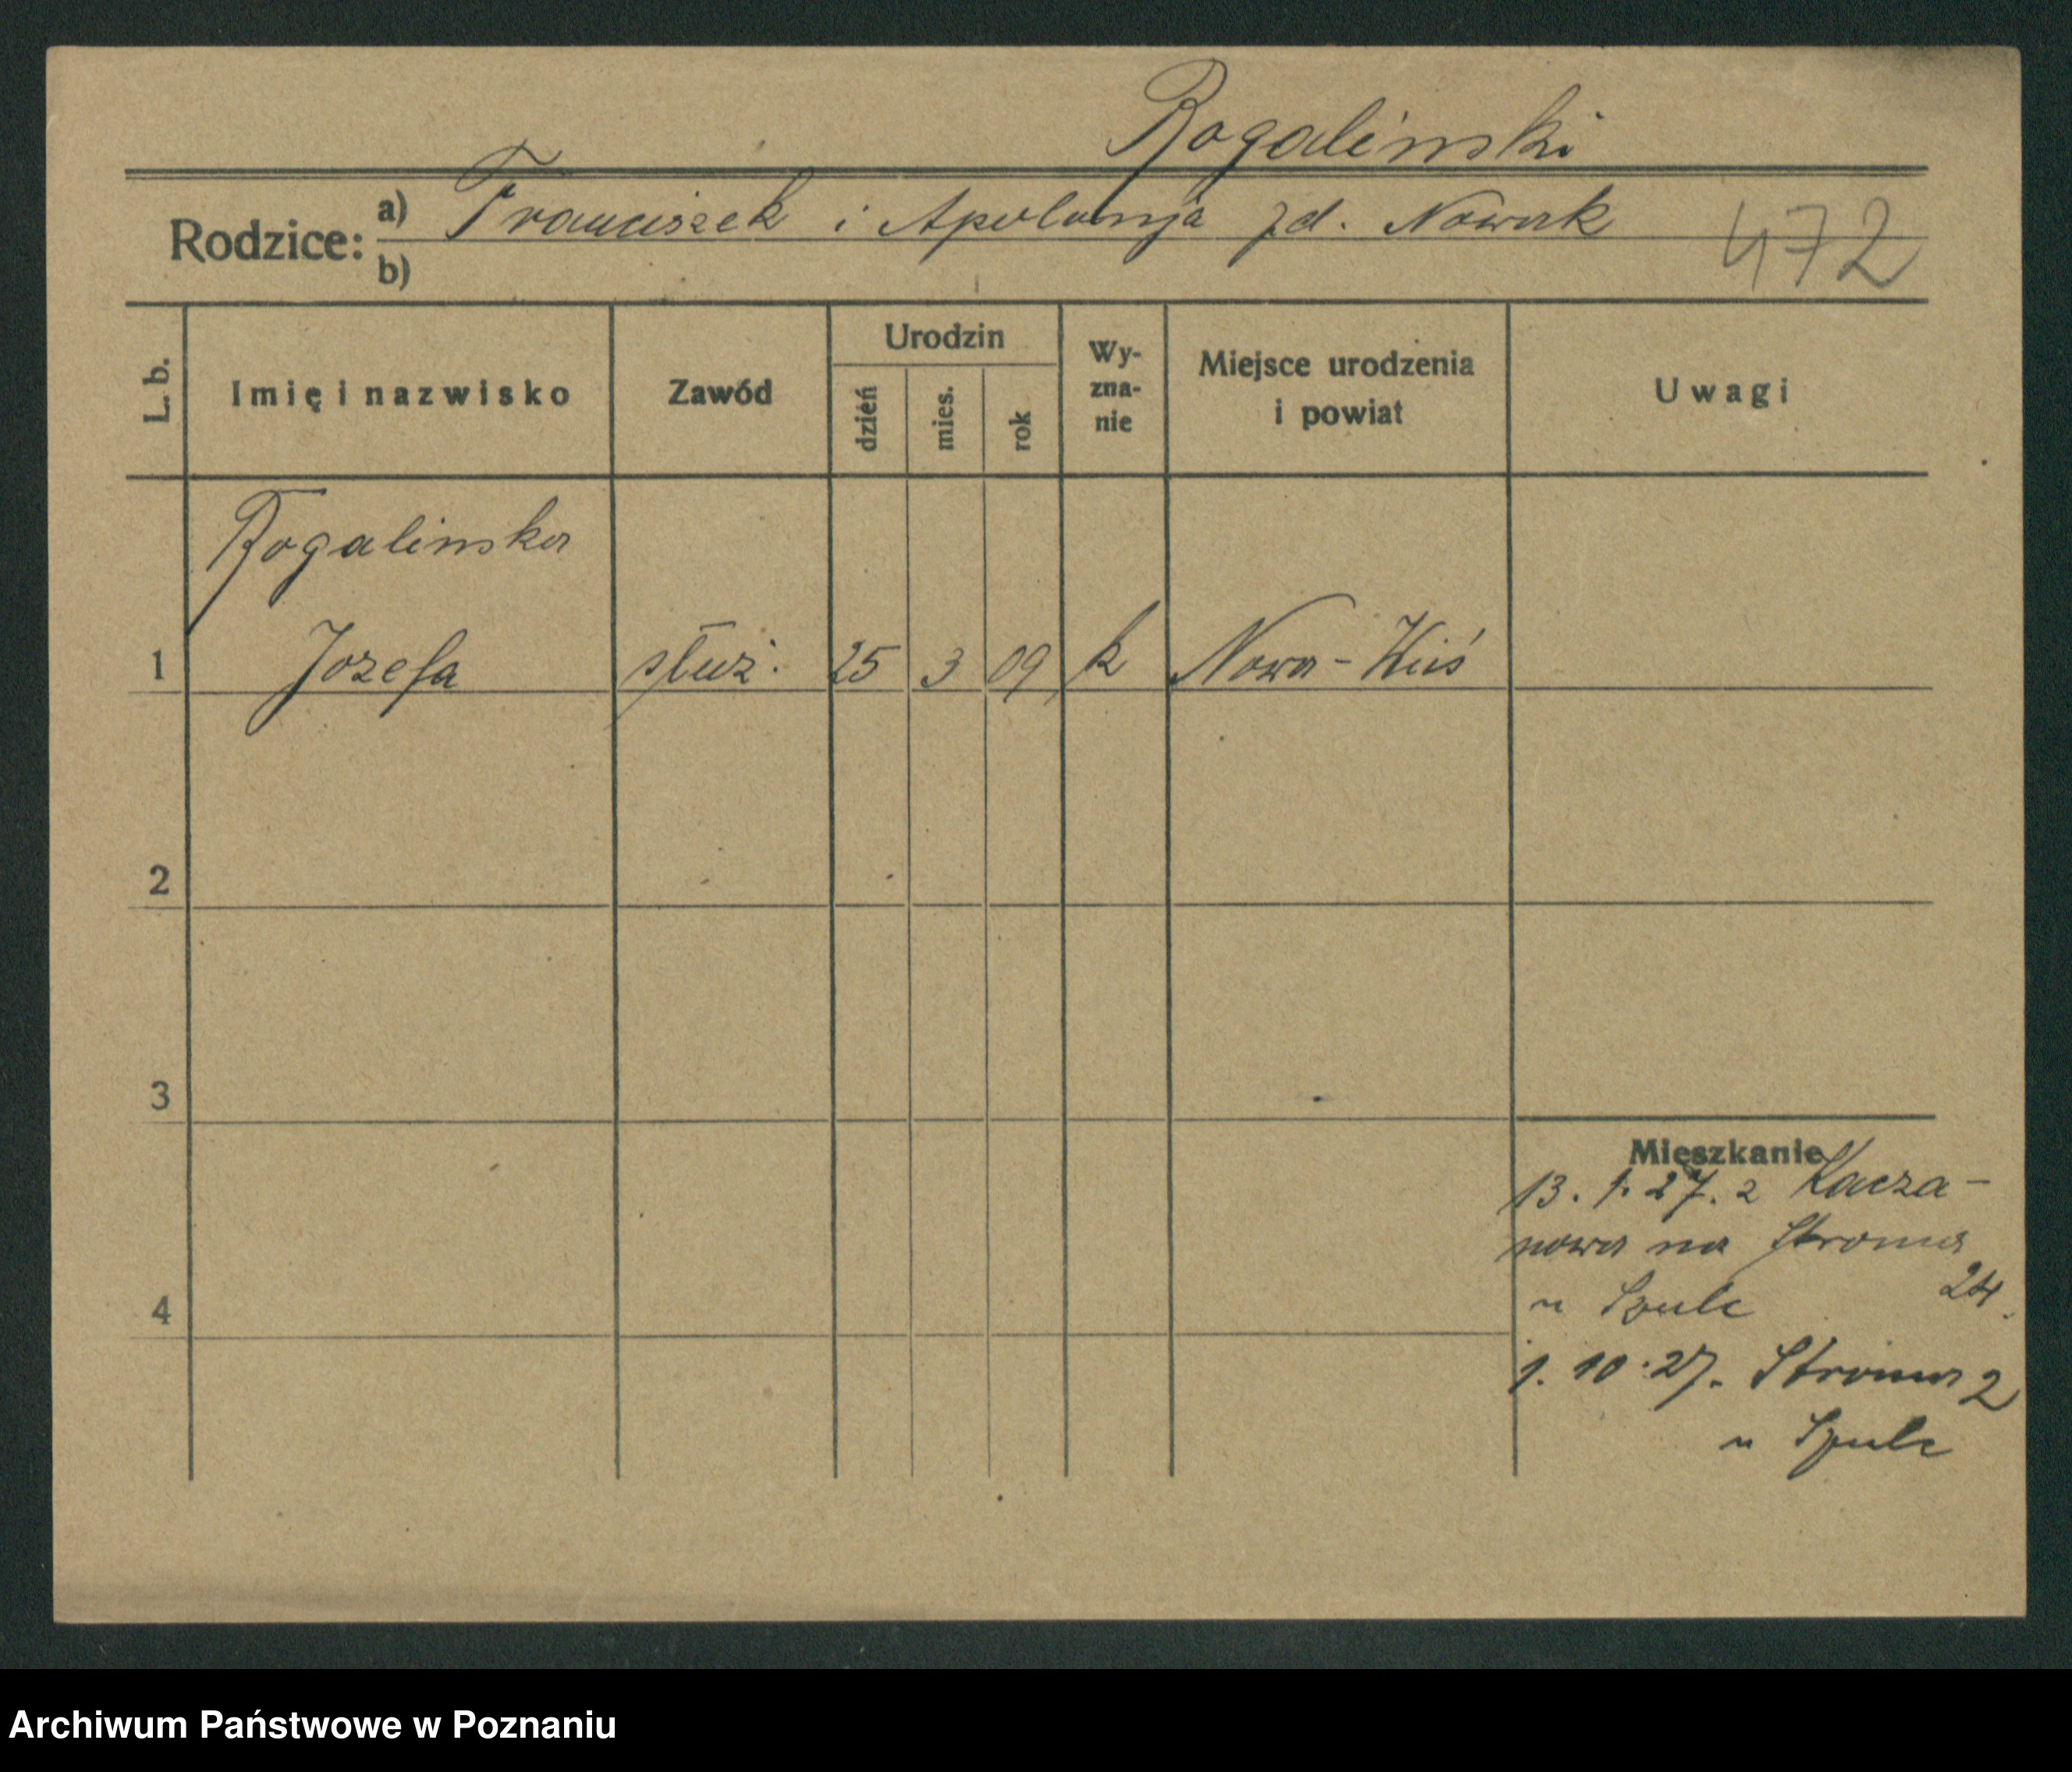 Rogalinski
Rodzice: a) Franciszek i Apolonja zd. Nowak
b)
472
L. b.
Imię i nazwisko
Zawód
Urodzin
dzień
mies.
rok
Wy-
zna-
nie
Miejsce urodzenia
i powiat
Uwagi
Rogalinska
1 Jozefa służ. 25 3 09 k Nowa-Wieś
2
3
4
Mieszkanie
13. 1. 27. z Kacza-
nowa na Stroma
24.
u Szulc
1. 10. 27. Stroma 2
u Szulc
Archiwum Państwowe w Poznaniu